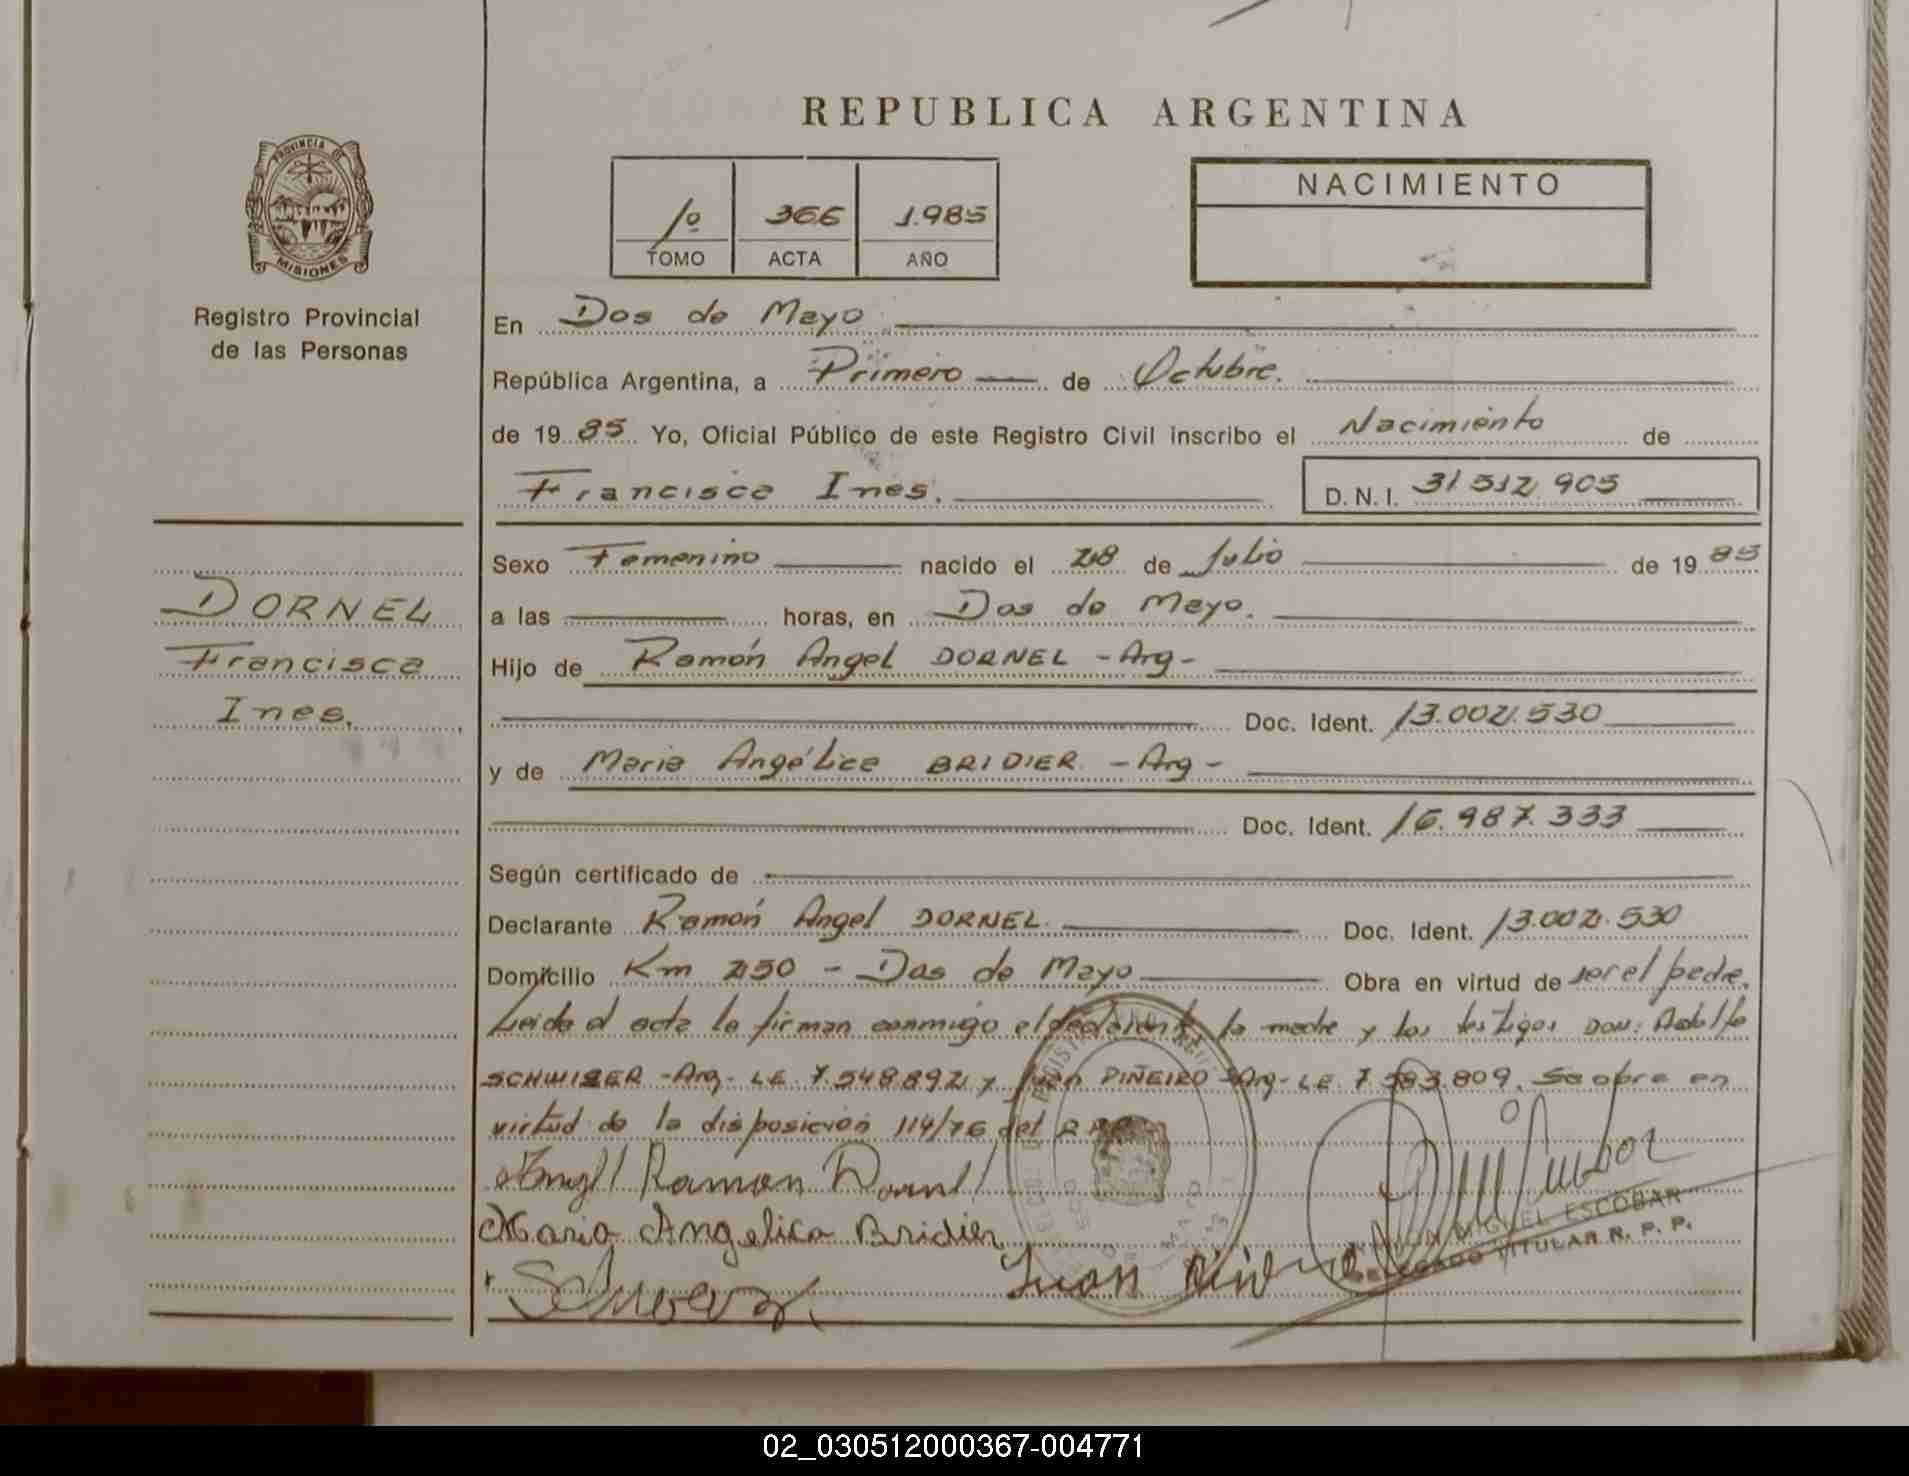 REPUBLICA ARGENTINA
PROVINCIA DE
MISIONES
Registro Provincial
de las Personas
1º 366 1.985
TOMO ACTA AÑO
NACIMIENTO
En Dos de Mayo
República Argentina, a Primero de Octubre.
de 19 85 Yo, Oficial Público de este Registro Civil inscribo el Nacimiento de
Francisca Ines. D.N.I. 31 512 905
DORNEL
Francisca
Ines.
Sexo Femenino nacido el 28 de Julio de 19 85
a las horas, en Dos de Mayo.
Hijo de Ramón Angel DORNEL - Arg -
Doc. Ident. 13.002.530
y de Maria Angélica BRIDIER - Arg -
Doc. Ident. 16.987.333
Según certificado de
Declarante Ramón Angel DORNEL Doc. Ident. 13.002.530
Domicilio Km 250 - Dos de Mayo Obra en virtud de ser el padre.
Leida el acta la firman conmigo el declarante la madre y los testigos DON: Adolfo
SCHWISER - Arg - LE 7.548.892 y Juan PIÑEIRO - Arg - LE 7.583.809. Se obra en
virtud de la disposición 114/76 del
Ramon Dornel
Maria Angelica Bridier
Juan
MIGUEL ESCOBAR
DELEGADO TITULAR R. P. P.
02_030512000367-004771